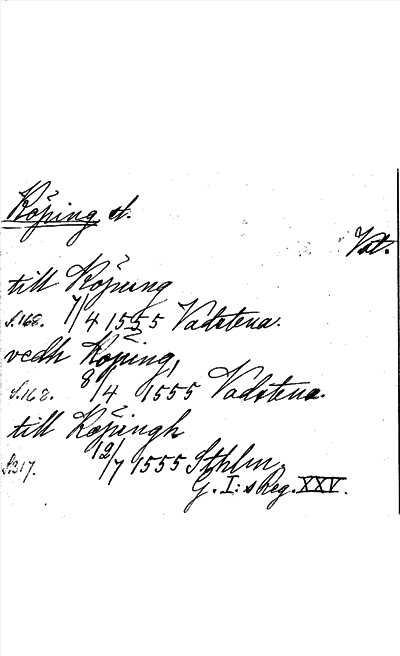 Köping st.
Vstm.
till Köping
s.168. 7/4 1555 Vadstena.
vedh Köping,
s.168. 8/4 1555 Vadstena.
till Köpingh
s.317. 12/7 1555 Sthlm
G. I:s Reg. XXV.